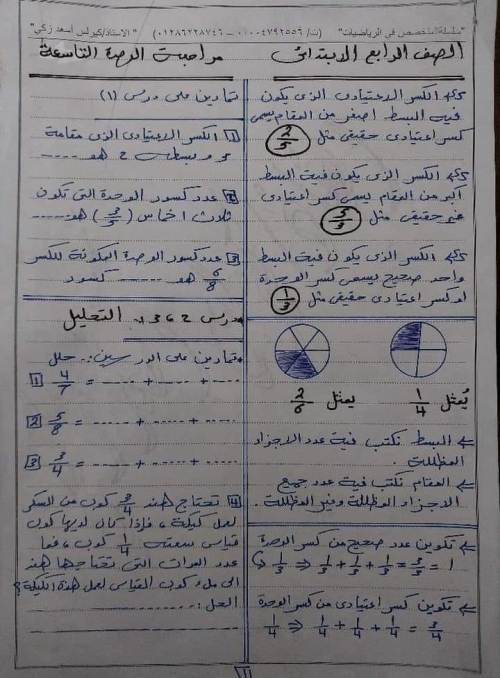 "سلسلة المتخصص فى الرياضيات" (ت/ ٠١٠٠٤٧٩٢٥٥٦ – ٠١٢٨٦٢٢٨٧٤٦) "الأستاذ/كيرلس أسعد زكي"
الصف الرابع الابتدائى
مراجعة الوحدة التاسعة
الكسر الاعتيادى الذى يكون
فيه البسط اصغر من المقام يسمى
كسر اعتيادى حقيقى مثل 2/5
الكسر الذى يكون فيه البسط
اكبر من المقام يسمى كسر اعتيادى
غير حقيقى مثل 5/3
الكسر الذى يكون فيه البسط
واحد صحيح يسمى كسر الوحدة
او كسر اعتيادى حقيقى مثل 1/3
يُمثل 1/4
يمثل 2/6
البسط نكتب فيه عدد الاجزاء
المظللة .
المقام نكتب فيه عدد جميع
الاجزاء المظللة وغير المظللة .
تكوين عدد صحيح من كسر الوحدة
1/3 ⇒ 1/3 + 1/3 + 1/3 = 3/3 = 1
تكوين كسر اعتيادى من كسر الوحدة
1/4 ⇒ 1/4 + 1/4 + 1/4 = 3/4
تمارين على درس (١)
1 الكسر الاعتيادى الذى مقامة
3 وبسطه 2 هو .....
2 عدد كسور الوحدة التى تكون
ثلاث اخماس (3/5) هو .....
3 عدد كسور الوحدة المكونة للكسر
6/8 هو ..... كسور
درس 2 ، 3 التحليل
تمارين على الدرسين :. حلل
1 4/7 = ..... + ..... + .....
2 5/8 = ..... + ..... + .....
3 3/4 = ..... + ..... + .....
4 تحتاج هند 3/4 كوب من السكر
لعمل كيكة ، فإذا كان لديها كوب
قياس سعته 1/4 كوب ، فما
عدد المرات التى تحتاجها هند
الى ملء كوب القياس لعمل هذة الكيكة ؟
الحل : .....